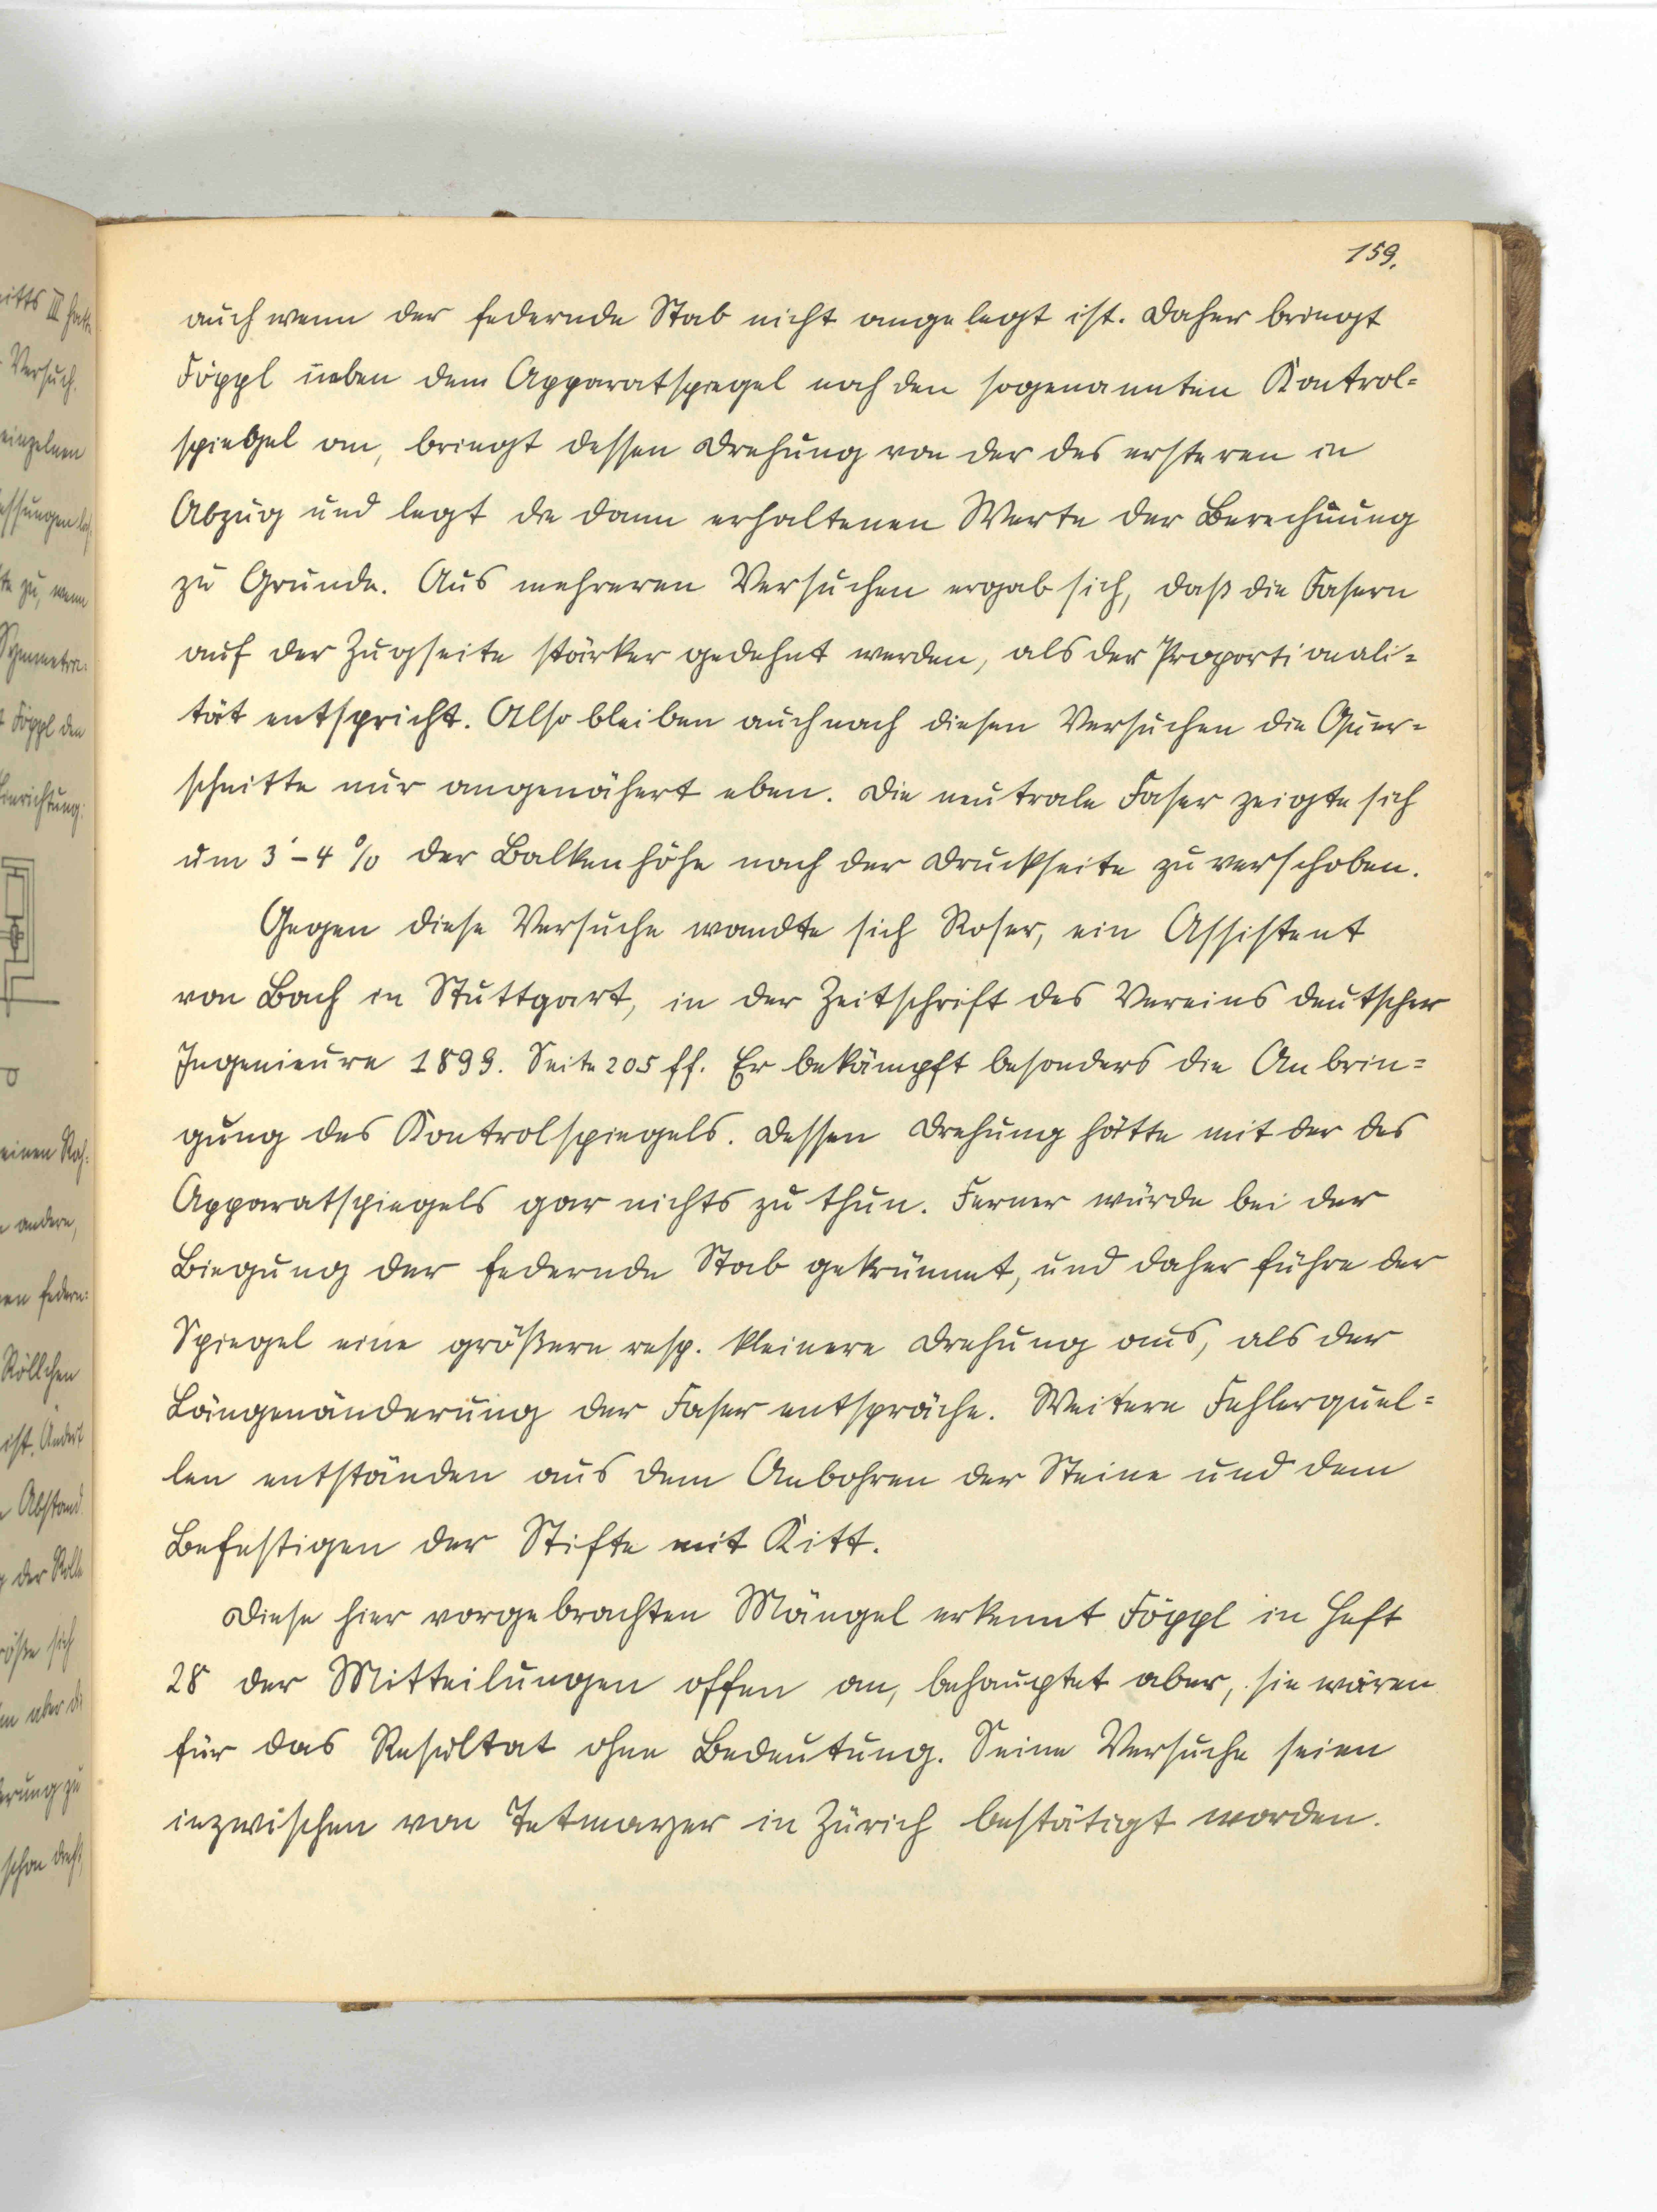 159.
auch wenn der federnde Stab nicht angelegt ist. Daher bringt
Föppl neben dem Apparatspiegel noch den sogenannten Kontrol=
spiegel an, bringt dessen Drehung von der des ersteren in
Abzug und legt die dann erhaltenen Werte der Berechnung
zu Grunde. Aus mehreren Versuchen ergab sich, daß die Fasern
auf der Zugseite stärker gedehnt werden, als der Proportionali=
tät entspricht. Also bleiben auch nach diesen Versuchen die Quer=
schnitte nur angenähert eben. Die neutrale Faser zeigte sich
um 3-4% der Balkenhöhe nach der Druckseite zu verschoben.
Gegen diese Versuche wandte sich Roser, ein Assistent
von Bach in Stuttgart, in der Zeitschrift des Vereins deutscher
Ingenieure 1899. Seite 205 ff. Er bekämpft besonders die Anbrin=
gung des Kontrolspiegels. Dessen Drehung hätte mit der des
Apparatspiegels gar nichts zu thun. Ferner würde bei der
Biegung der federnde Stab gekrümmt, und daher führe der
Spiegel eine größere resp. kleinere Drehung aus, als der
Längenänderung der Faser entspräche. Weitere Fehlerquel=
len entständen aus dem Anbohren der Steine und dem
Befestigen der Stifte mit Kitt.
Diese hier vorgebrachten Mängel erkennt Föppl in Heft
28 der Mitteilungen offen an, behauptet aber, sie wären
für das Resultat ohne Bedeutung. Seine Versuche seien
inzwischen von Tetmayer in Zürich bestätigt worden.